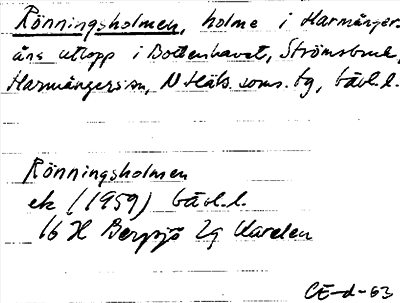 Rönningsholmen, holme i Harmånger-
åns utlopp i Bottenhavet, Strömsbruk,
Harmångers sn, N Häls. doms. tg, Gävl. l.
Rönningsholmen
ek (1959) Gävl. l.
16 H Bergsjö 2g Karelen
CE-d-63